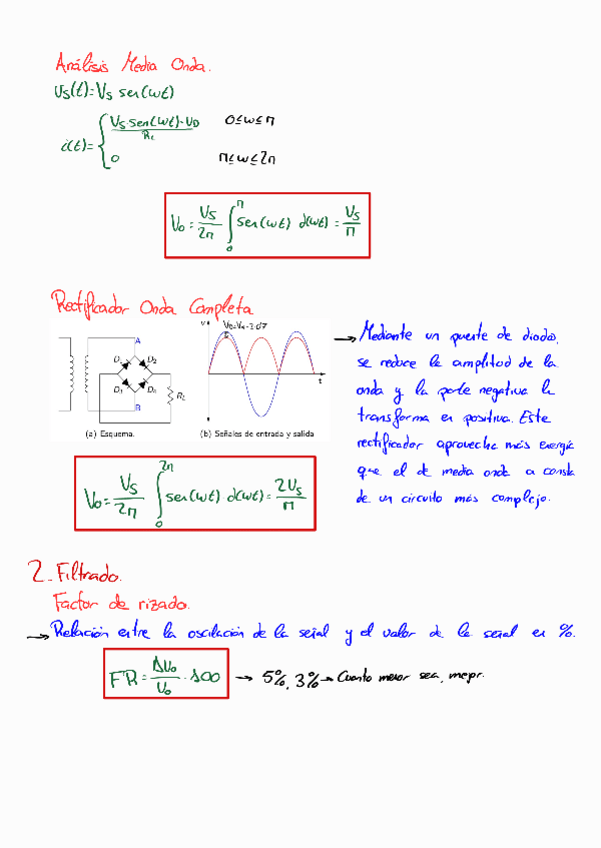 Análisis Media Onda.
Vs(t)=Vs sen(wt)
i(t)= { Vs·sen(wt)-VD / RL   0≤w≤π
0   π≤w≤2π
Vo = Vs/2π ∫₀^π sen(wt) d(wt) = Vs/π
Rectificador Onda Completa
v
t
A
D1 D2
D3
RL
B
(a) Esquema.
(b) Señales de entrada y salida
→ Mediante un puente de diodos,
se reduce la amplitud de la
onda y la parte negativa la
transforma en positiva. Este
rectificador aprovecha más energía
que el de media onda a costa
de un circuito más complejo.
Vo = Vs/2π ∫₀^2π sen(wt) d(wt) = 2Vs/π
2. Filtrado.
Factor de rizado.
→ Relación entre la oscilación de la señal y el valor de la señal en %.
FR = ΔVo/Vo · 100 → 5%, 3% → Cuanto menor sea, mejor.